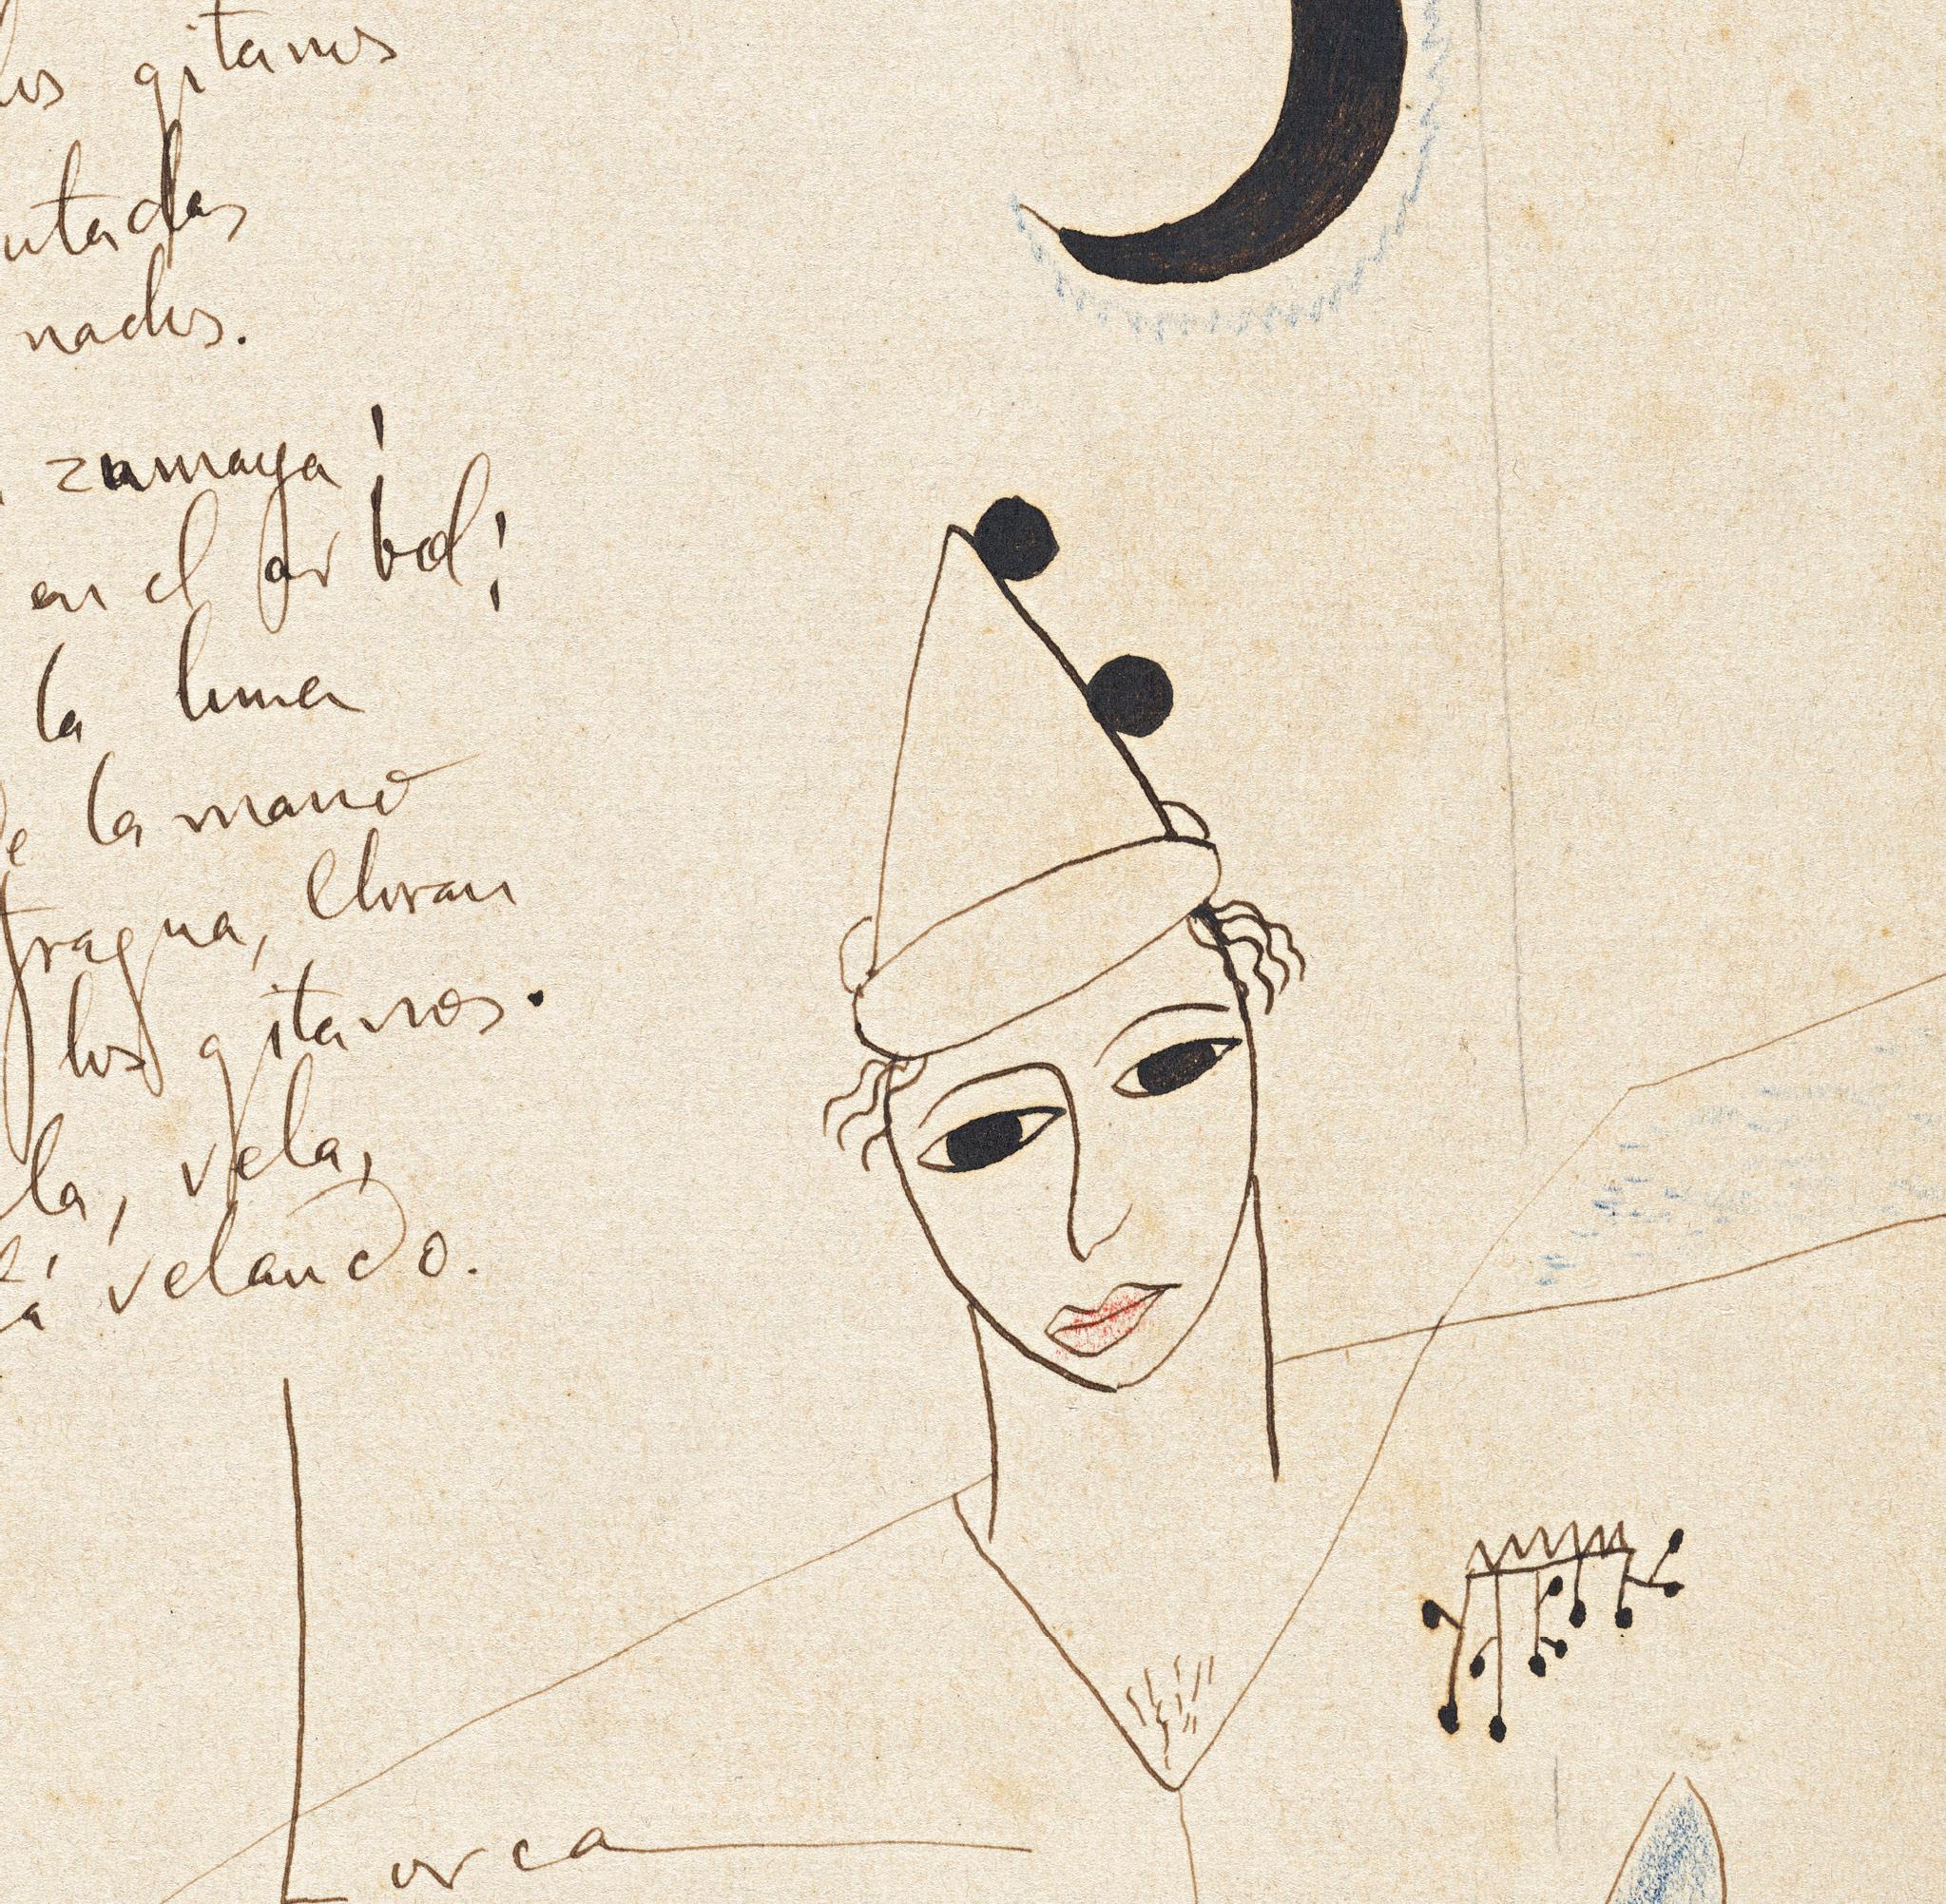 los gitanos
ntadas
nados.
zumaya!
en el arbol!
la luna
de la mano
fragua, lloran
los gitanos.
la, vela,
velando.
Lorca